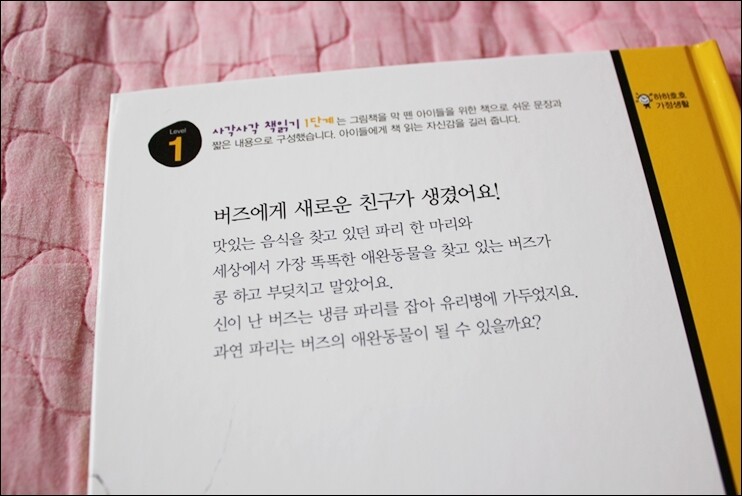 Level
1
사각사각 책읽기 1단계 는 그림책을 막 뗀 아이들을 위한 책으로 쉬운 문장과
짧은 내용으로 구성했습니다. 아이들에게 책 읽는 자신감을 길러 줍니다.
하하호호
가정생활
버즈에게 새로운 친구가 생겼어요!
맛있는 음식을 찾고 있던 파리 한 마리와
세상에서 가장 똑똑한 애완동물을 찾고 있는 버즈가
콩 하고 부딪치고 말았어요.
신이 난 버즈는 냉큼 파리를 잡아 유리병에 가두었지요.
과연 파리는 버즈의 애완동물이 될 수 있을까요?